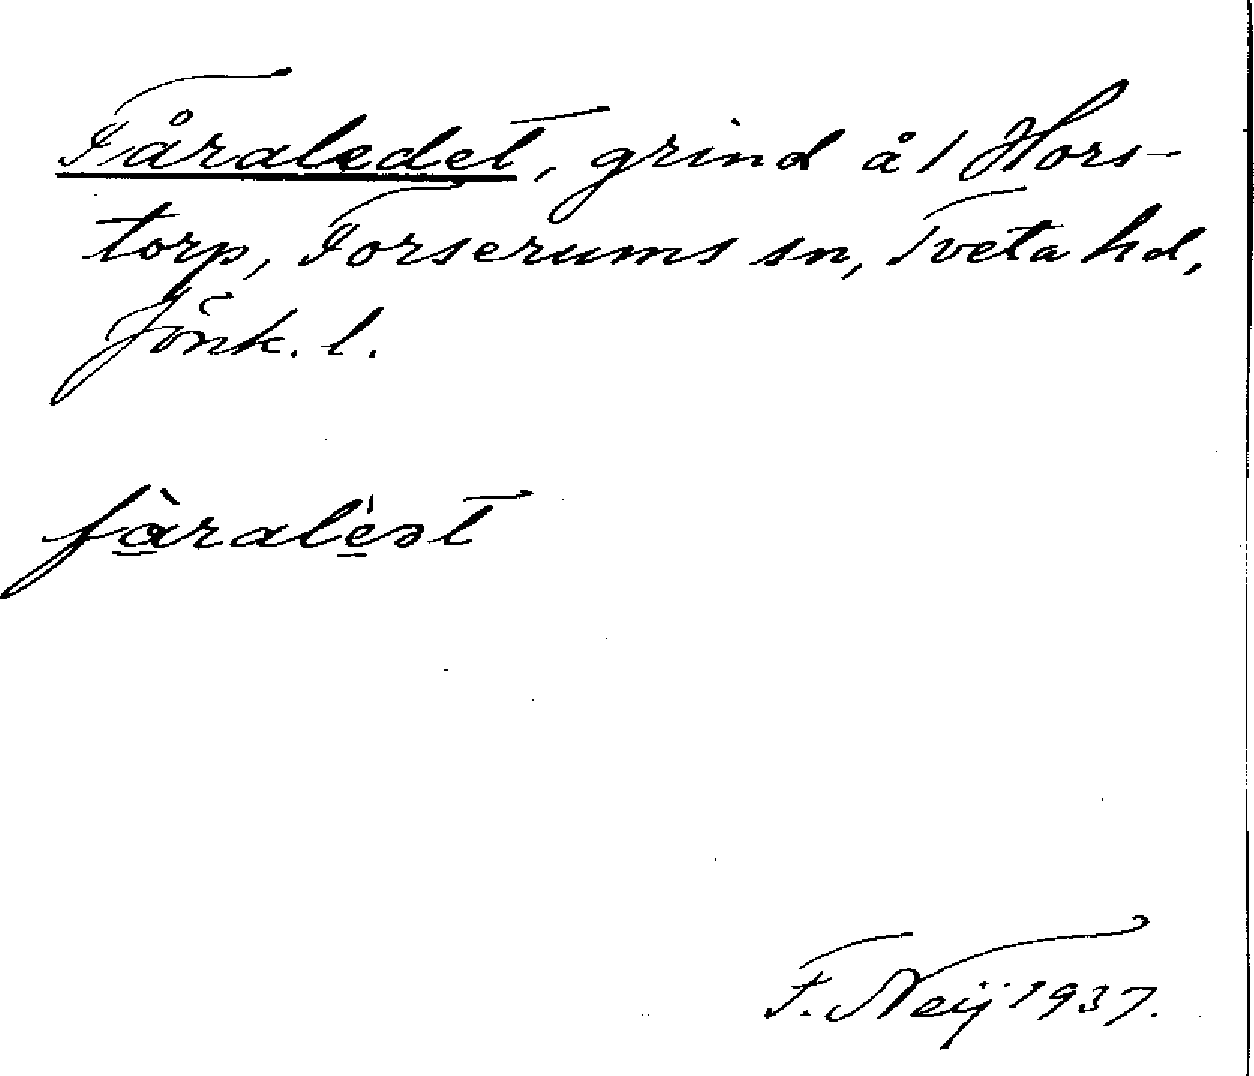 Fåraledet, grind å / Hors-
torp, Forserums sn, Tveta hd,
Jönk. l.
fàralèət
F. Neij 1937.